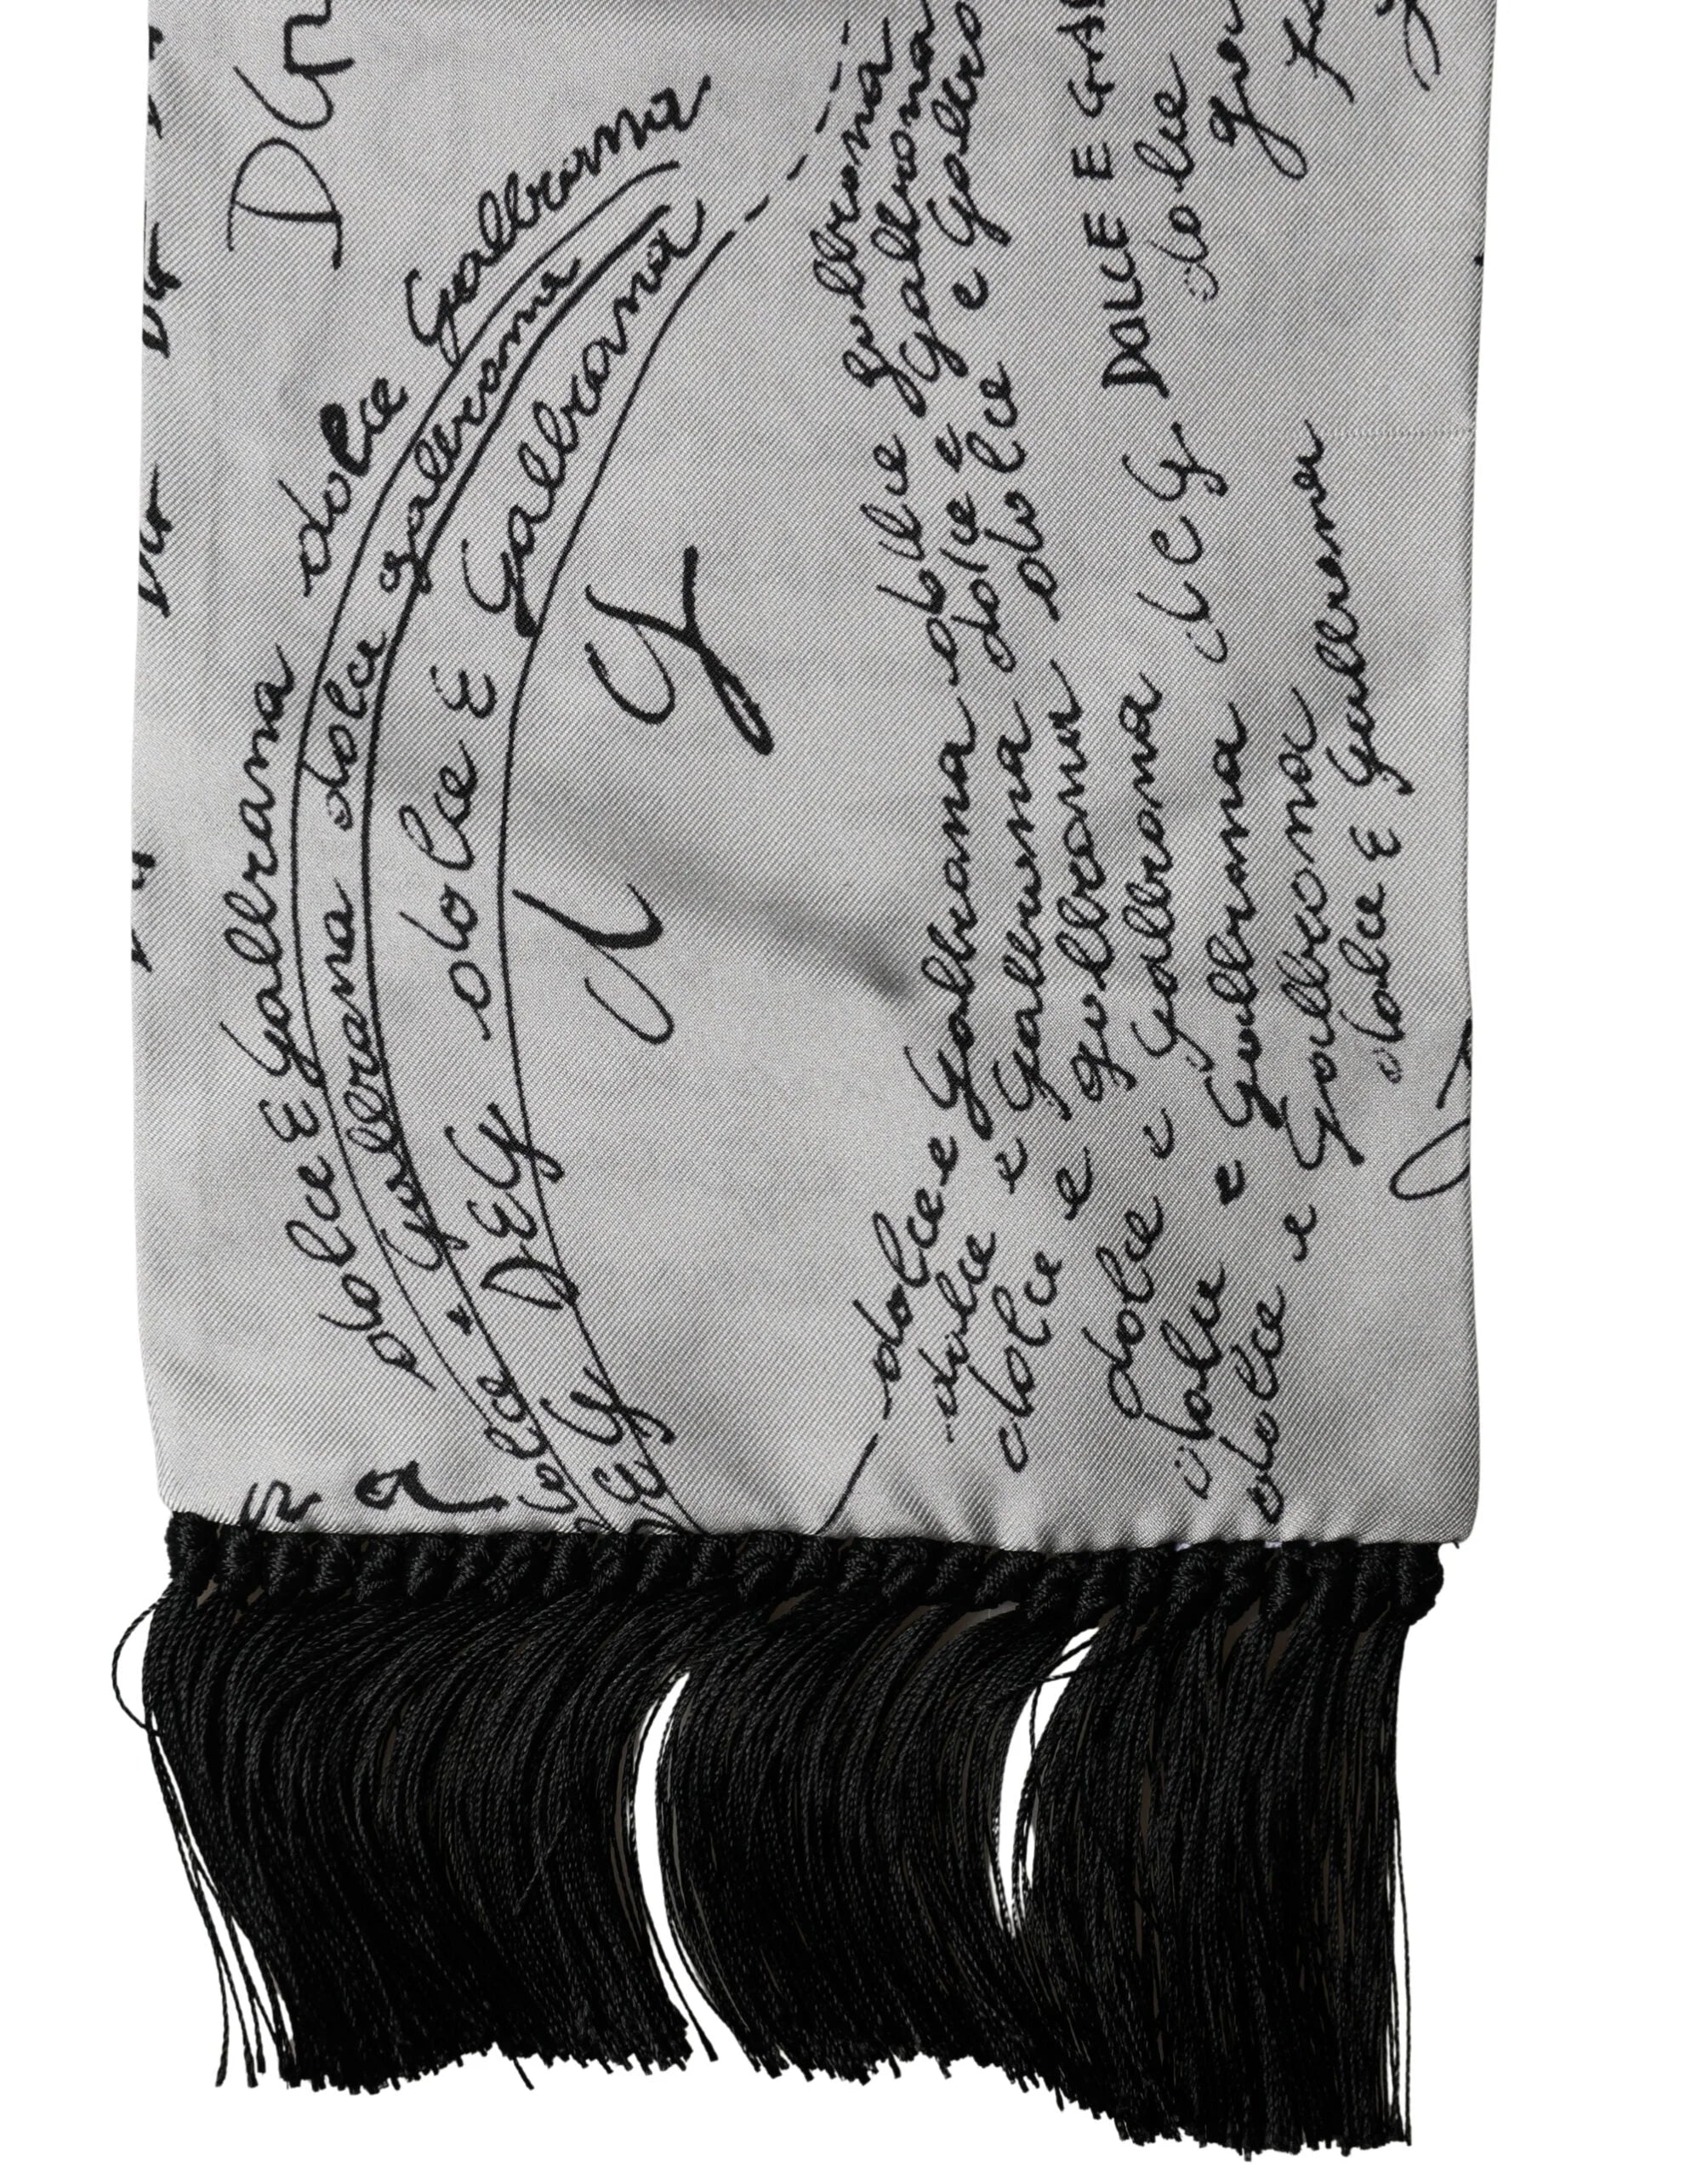 DG
dolce E Gabbana dolce Gabbana
dolce Gabbana dolce gabbana
DEG dolce E Gabbana
DEG
d G
dolce e Gabbana dolce gabbana
dolce e Gabbana dolce e Gabbana
dolce e gabbana dolce e Gabba
dolce e Gabbana d e G DOLCE E GA
dolce e Gabbana dolce
dolce e Gabbana
dolce E Gabbana
DG
DG